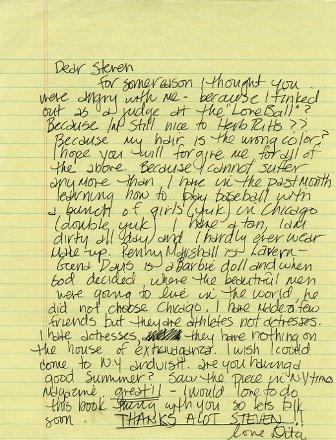 Dear Steven
for some reason I thought you
were angry with me - because I finked
out as a judge at the "Love Ball"?
Because I'm still nice to Herb Ritts??
Because my hair is the wrong color?
I hope you will forgive me for all of
the above. Because I cannot suffer
anymore than I have in the past month
learning how to play baseball with
a bunch of girls (yuk) in Chicago
(double yuk) I have a tan, I am
dirty all day and I hardly ever wear
make-up. Penny Marshall is Lavern-
Geena Davis is a Barbie doll and when
God decided where the beautiful men
were going to live in the world, he
did not choose Chicago. I have made a few
friends but they are athletes not actresses.
I hate actresses they have nothing on
the house of extravaganza. I wish I could
come to NY and visit. are you having a
good Summer? Saw the piece in NY times
magazine great!! I would love to do
this book with you so lets talk
soon. THANKS A LOT STEVEN!!
love Dita